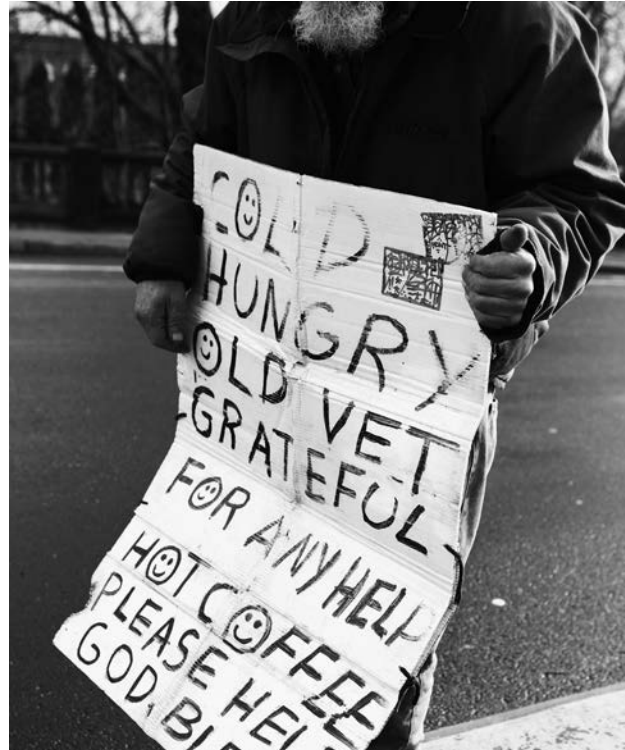 COLD
HUNGRY
OLD VET
GRATEFUL
FOR ANY HELP
HOT COFFEE
PLEASE HEL
GOD BL